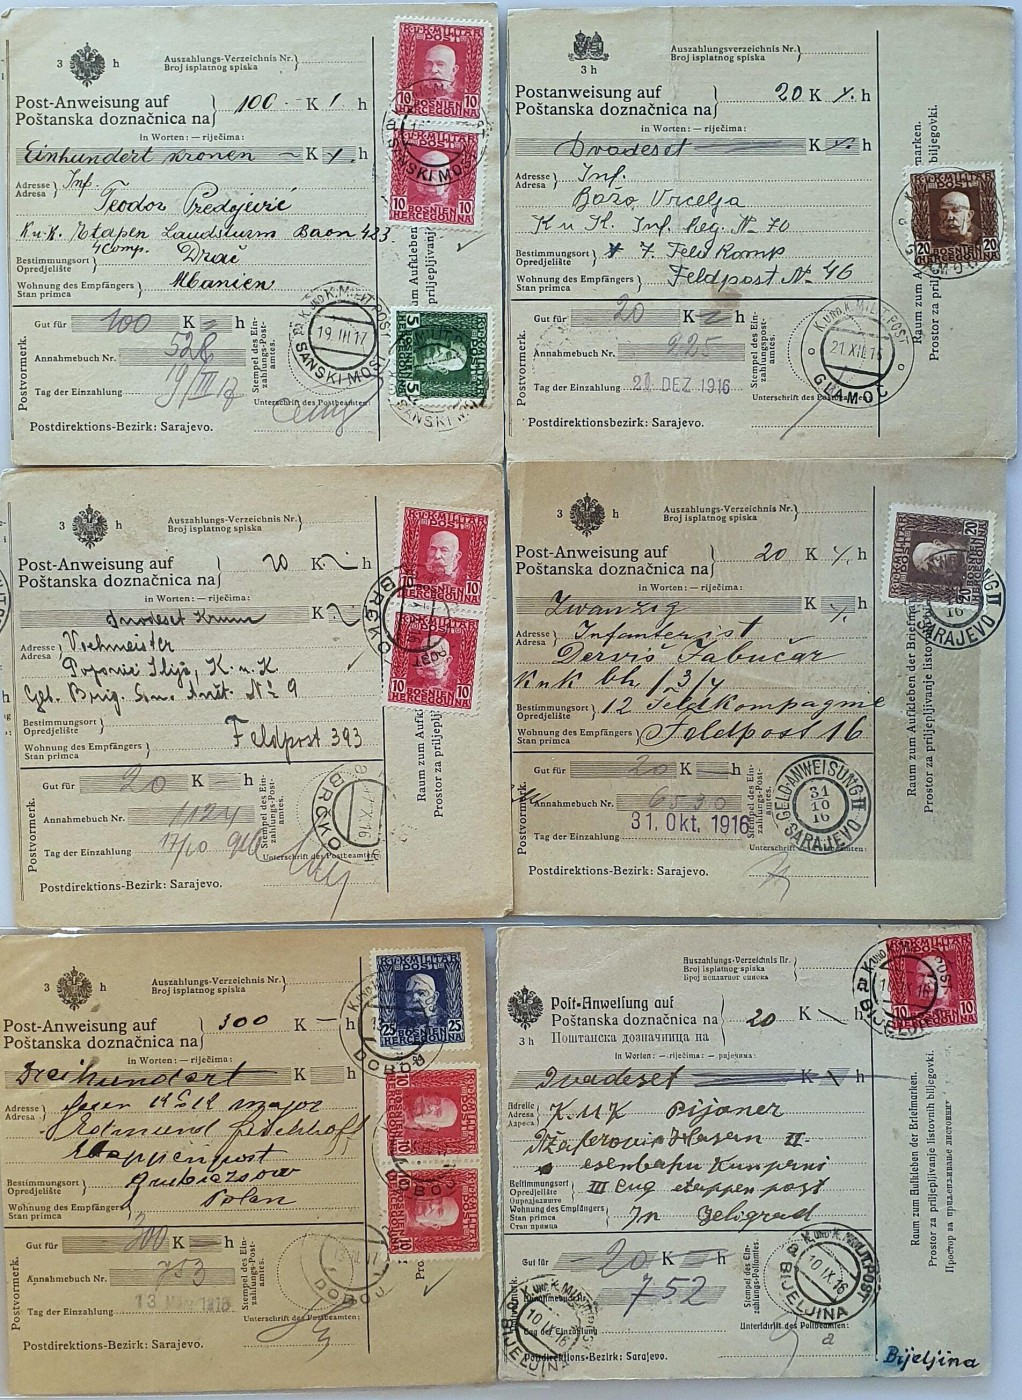 3 h
Auszahlungs-Verzeichnis Nr.
Broj isplatnog spiska
Post-Anweisung auf
Poštanska doznačnica na
100 K h
in Worten: — riječima:
Einhundert kronen K h
Adresse
Adresa
Inf.
Teodor Predojević
K.u.K. Etapen Landsturm Baon 423
4 Comp. Drač
Bestimmungsort
Opredjelište
Albanien
Wohnung des Empfängers
Stan primca
Gut für 100 K h
Postvormerk.
Annahmebuch Nr. 528
Tag der Einzahlung 19/III 17
Stempel des Einzahlungs-Postamtes.
Unterschrift des Postbeamten:
Postdirektions-Bezirk: Sarajevo.
K.u.K. MILITÄR POST
10 10
BOSNIEN HERCEGOVINA
K.u.K. MILITÄR POST
10 10
BOSNIEN HERCEGOVINA
K. UND K. MILIT. POST
19. III. 17
SANSKI MOST
5 5
3 h
Auszahlungsverzeichnis Nr.
Broj isplatnog spiska
Postanweisung auf
Poštanska doznačnica na
20 K h
in Worten: — riječima:
Dvadeset K h
Adresse
Adresa
Inf.
Božo Vrcelja
K u K. Inf. Reg. No 70
7. Feldkomp
Bestimmungsort
Opredjelište
Feldpost No 46
Wohnung des Empfängers
Stan primca
Gut für 20 K h
Postvormerk.
Annahmebuch Nr. 925
Tag der Einzahlung 21 DEZ 1916
Stempel des Einzahlungspostamtes.
Unterschrift des Postbeamten:
Postdirektionsbezirk: Sarajevo.
K.u.K. MILITÄR POST
20 20
BOSNIEN HERCEGOVINA
K. UND K. MILIT. POST
21. XII. 16
GLAMOČ
Prostor za priljepljivanje biljegovki.
3 h
Auszahlungs-Verzeichnis Nr.
Broj isplatnog spiska
Post-Anweisung auf
Poštanska doznačnica na
20 K h
in Worten: — riječima:
K h
Adresse
Adresa
K. u. K
No 9
Bestimmungsort
Opredjelište
Feldpost 393
Wohnung des Empfängers
Stan primca
Gut für 20 K h
Postvormerk.
Annahmebuch Nr. 1124
Tag der Einzahlung 17/10 916
Stempel des Einzahlungs-Postamtes.
Unterschrift des Postbeamten:
Postdirektions-Bezirk: Sarajevo.
K.u.K. MILITÄR POST
10 10
BOSNIEN HERCEGOVINA
K.u.K. MILITÄR POST
10 10
BOSNIEN HERCEGOVINA
BRČKO
Raum zum Aufkleben
Prostor za priljepljivanje
3 h
Auszahlungs-Verzeichnis Nr.
Broj isplatnog spiska
Post-Anweisung auf
Poštanska doznačnica na
20 K h
in Worten: — riječima:
Zwanzig K h
Adresse
Adresa
Infanterist
Derviš Tabučar
KuK bh /3/4
Bestimmungsort
Opredjelište
12 Feldkompagnie
Wohnung des Empfängers
Stan primca
Feldpost 16
Gut für 20 K h
Postvormerk.
Annahmebuch Nr. 6530
Tag der Einzahlung 31. Okt. 1916
Stempel des Einzahlungs-Postamtes.
Unterschrift des Postbeamten:
Postdirektions-Bezirk: Sarajevo.
K.u.K. MILITÄR POST
20 20
BOSNIEN HERCEGOVINA
GELD-ANWEISUNG II
31 10 16
SARAJEVO
Raum zum Aufkleben der Briefmarken
Prostor za priljepljivanje listovnih
3 h
Auszahlungs-Verzeichnis Nr.
Broj isplatnog spiska
Post-Anweisung auf
Poštanska doznačnica na
300 K h
in Worten: — riječima:
Dreihundert K h
Adresse
Adresa
major
Edmund
Etappenpost
Bestimmungsort
Opredjelište
Hrubieszow
Wohnung des Empfängers
Stan primca
Polen
Gut für 300 K h
Postvormerk.
Annahmebuch Nr. 753
Tag der Einzahlung 13
Stempel des Einzahlungs-Postamtes.
Unterschrift des Postbeamten:
Postdirektions-Bezirk: Sarajevo.
K.u.K. MILITÄR POST
25 25
BOSNIEN HERCEGOVINA
10 10
10 10
DOBOJ
Auszahlungs-Verzeichnis Nr.
Broj isplatnog spiska
Број исплатног списка
3 h
Post-Anweisung auf
Poštanska doznačnica na
Поштанска дозначница на
20 K h
in Worten: — riječima: — ријечима:
Dvadeset K h
Adresse
Adresa
Адреса
K.u K pijoner
Džaferović Hasan II
esenbahn Kumpani
Bestimmungsort
Opredjelište
Опредјелиште
III Cug etappen post
Wohnung des Empfängers
Stan primca
Стан примца
In Belograd
Gut für 20 K h
Annahmebuch Nr. 752
Tag der Einzahlung
Stempel des Einzahlungs-Postamtes.
Unterschrift des Postbeamten:
Postdirektions-Bezirk: Sarajevo.
K.u.K. MILITÄR POST
10 10
K. UND K. MILIT. POST
10. IX. 16
BIJELJINA
a
Raum zum Aufkleben der Briefmarken.
Prostor za priljepljivanje listovnih biljegova.
Простор за прилепљивање листовних
Bijeljina